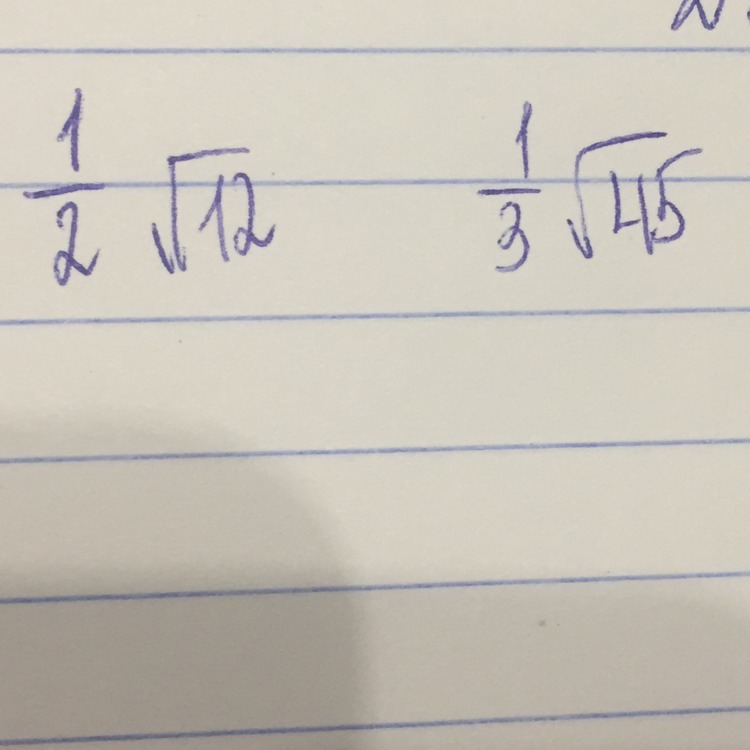 1/2 √12 1/3 √45